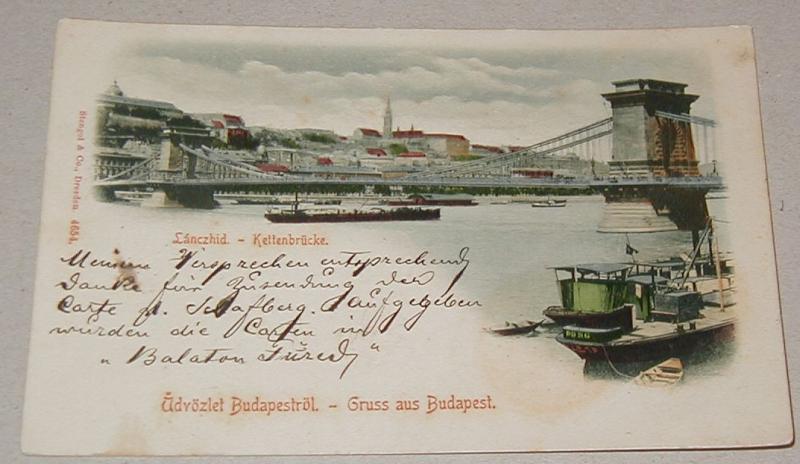 Stengel & Co., Dresden 4654.
Lánczhid. - Kettenbrücke.
Meinem Versprechen entsprechend
danke für Zusendung der
Carte v. Schafberg. Aufgegeben
wurden die Carten in
"Balaton Füred"
Üdvözlet Budapestről. - Gruss aus Budapest.